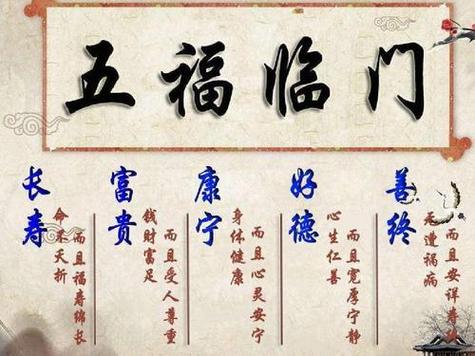 五福临门
长寿
命不夭折
而且福寿绵长
富贵
钱财富足
而且受人尊重
康宁
身体健康
而且心灵安宁
好德
心生仁善
而且宽厚宁静
善终
无遭祸病
而且安详寿